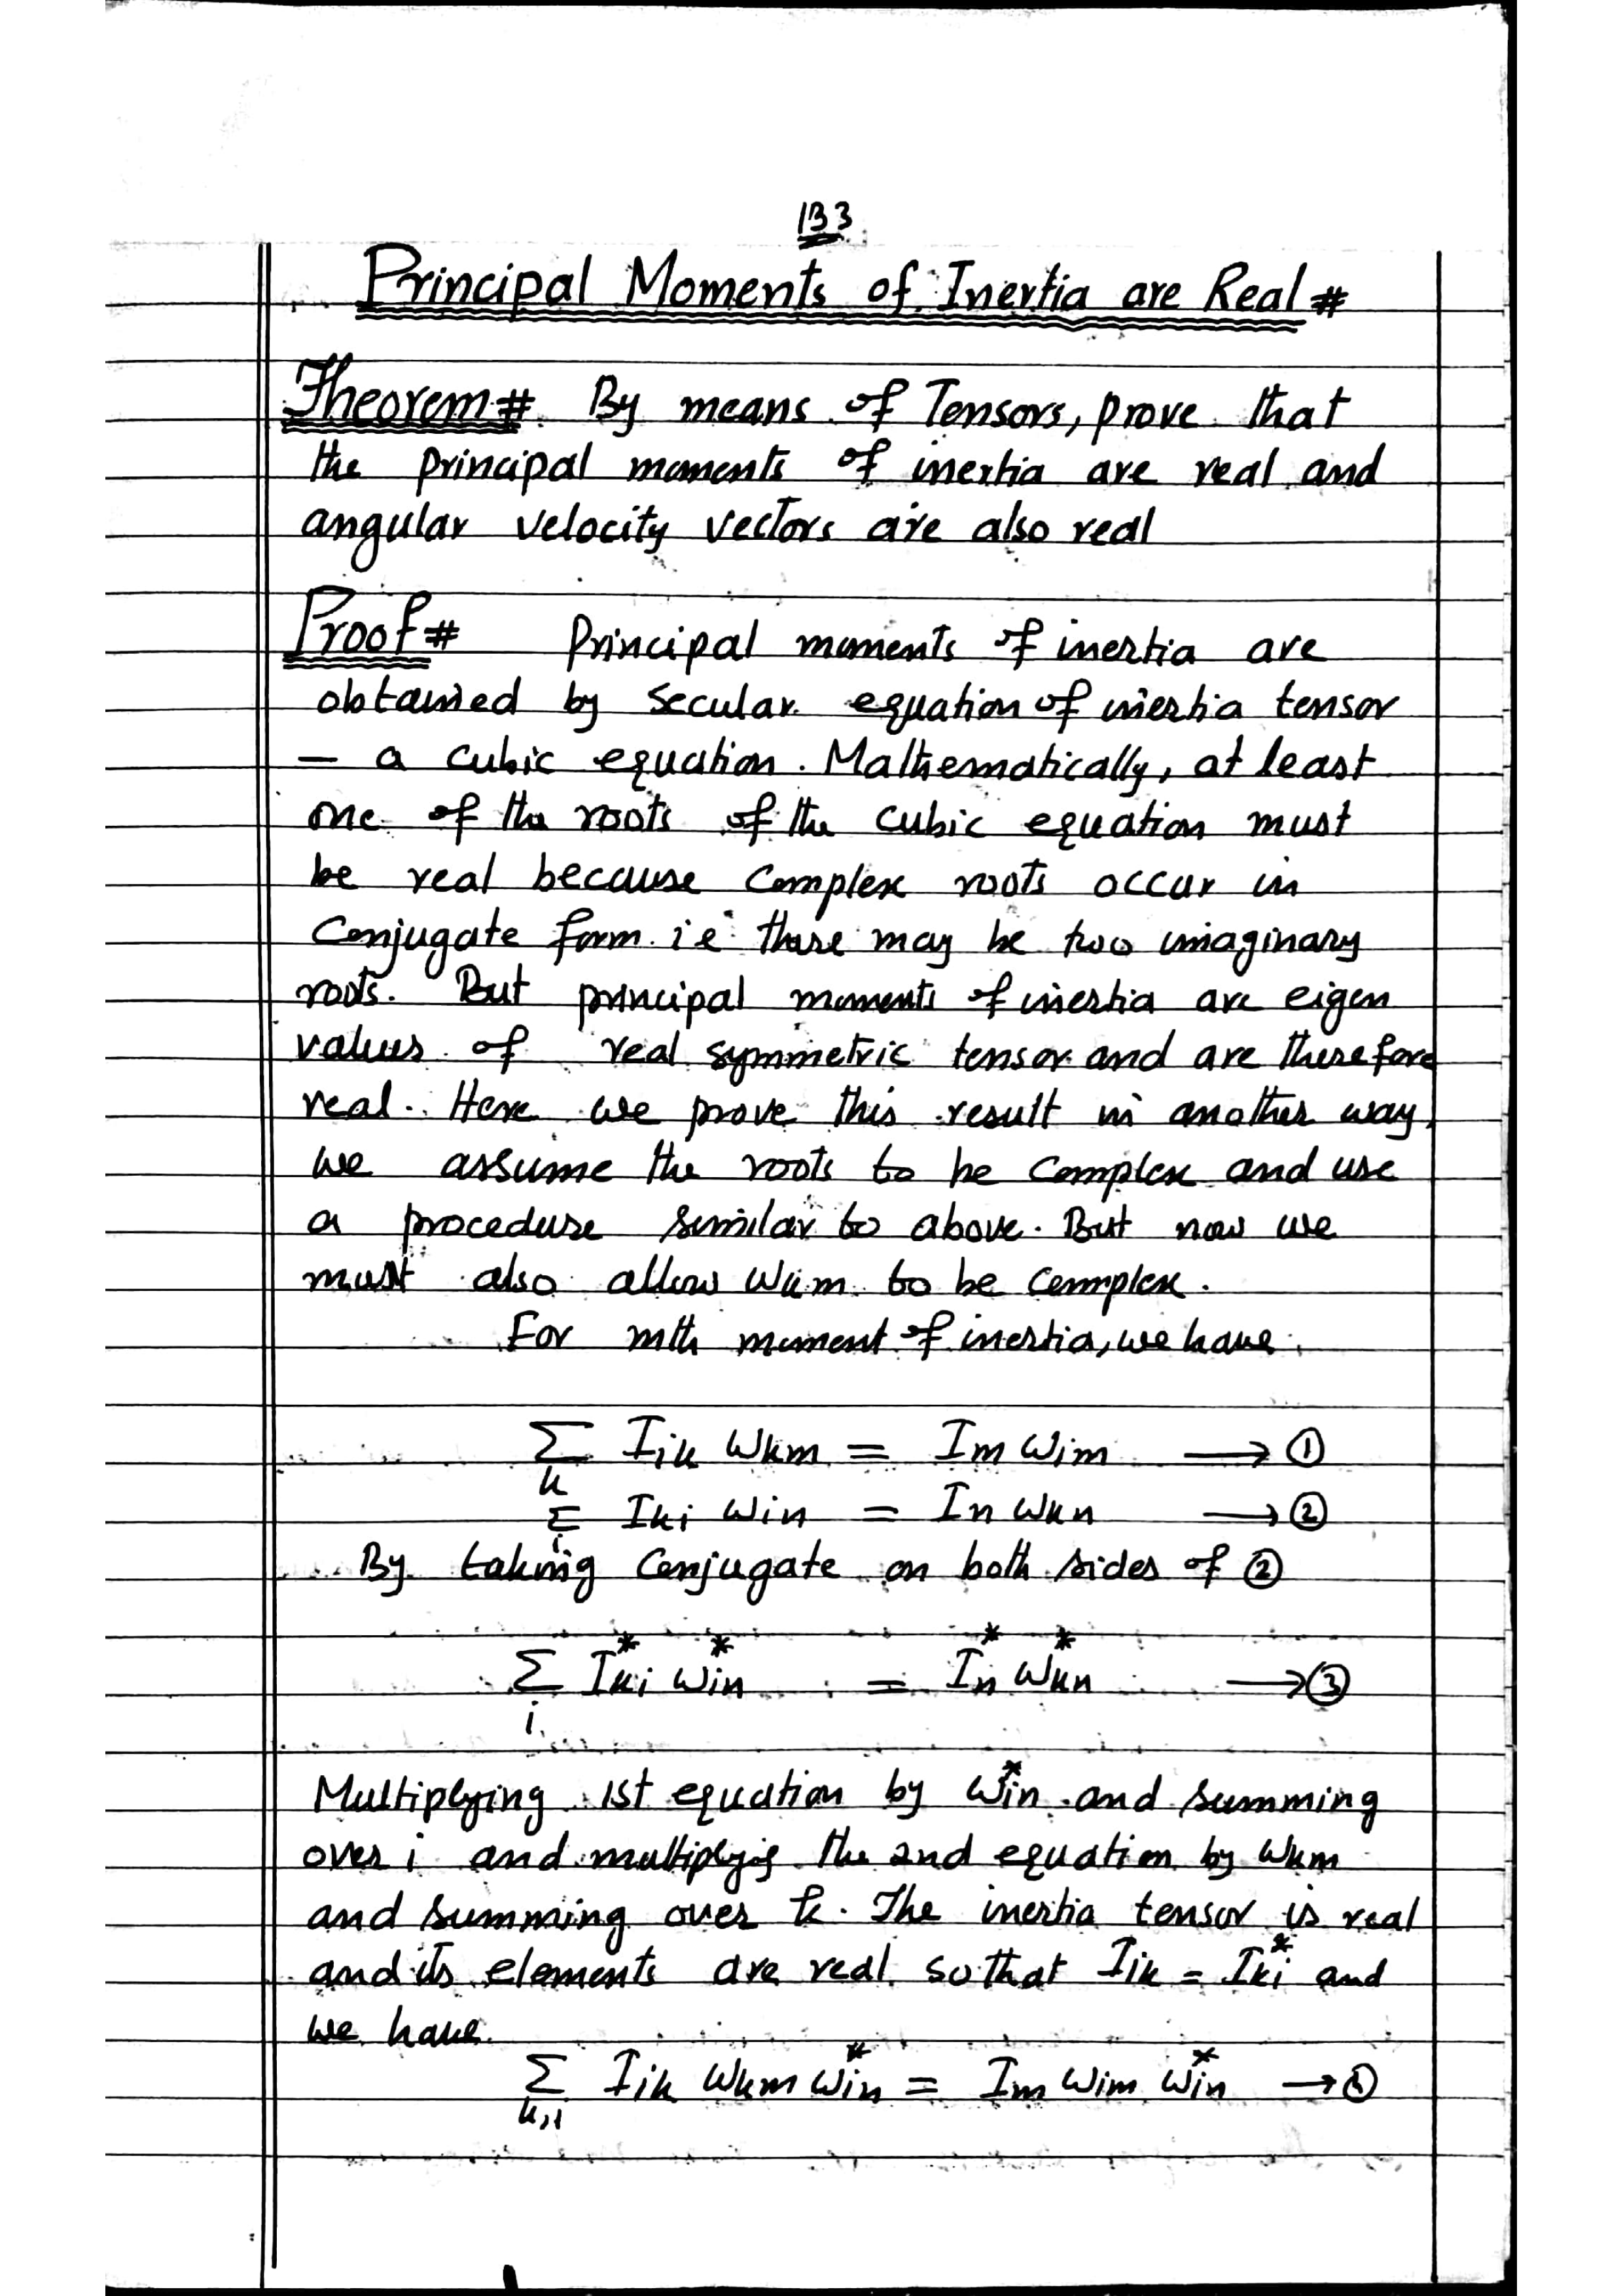 133
Principal Moments of Inertia are Real #
Theorem# By means of Tensors, prove that
the principal moments of inertia are real and
angular velocity vectors are also real
Proof# Principal moments of inertia are
obtained by secular equation of inertia tensor
— a cubic equation. Mathematically, at least
one of the roots of the cubic equation must
be real because complex roots occur in
Conjugate form i.e there may be two imaginary
roots. But principal moments of inertia are eigen
values of real symmetric tensor and are therefore
real. Here we prove this result in another way,
we assume the roots to be complex and use
a procedure similar to above. But now we
must also allow Wkm to be complex.
For mth moment of inertia, we have
∑ₖ Iik Wkm = Im Wim → ①
∑ᵢ Iki Win = In Wkn → ②
By taking Conjugate on both sides of ②
∑ᵢ I*ki W*in = I*n W*kn → ③
Multiplying 1st equation by W*in and summing
over i and multiplying the 2nd equation by Wkm
and summing over k. The inertia tensor is real
and its elements are real. so that Iik = I*ki and
we have
∑k,i Iik Wkm W*in = Im Wim W*in →